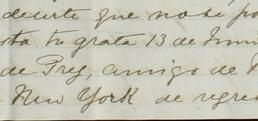 decirte que no sé po
sta tu grata 13 de Juni
de Prey, amigo de
New York de regre